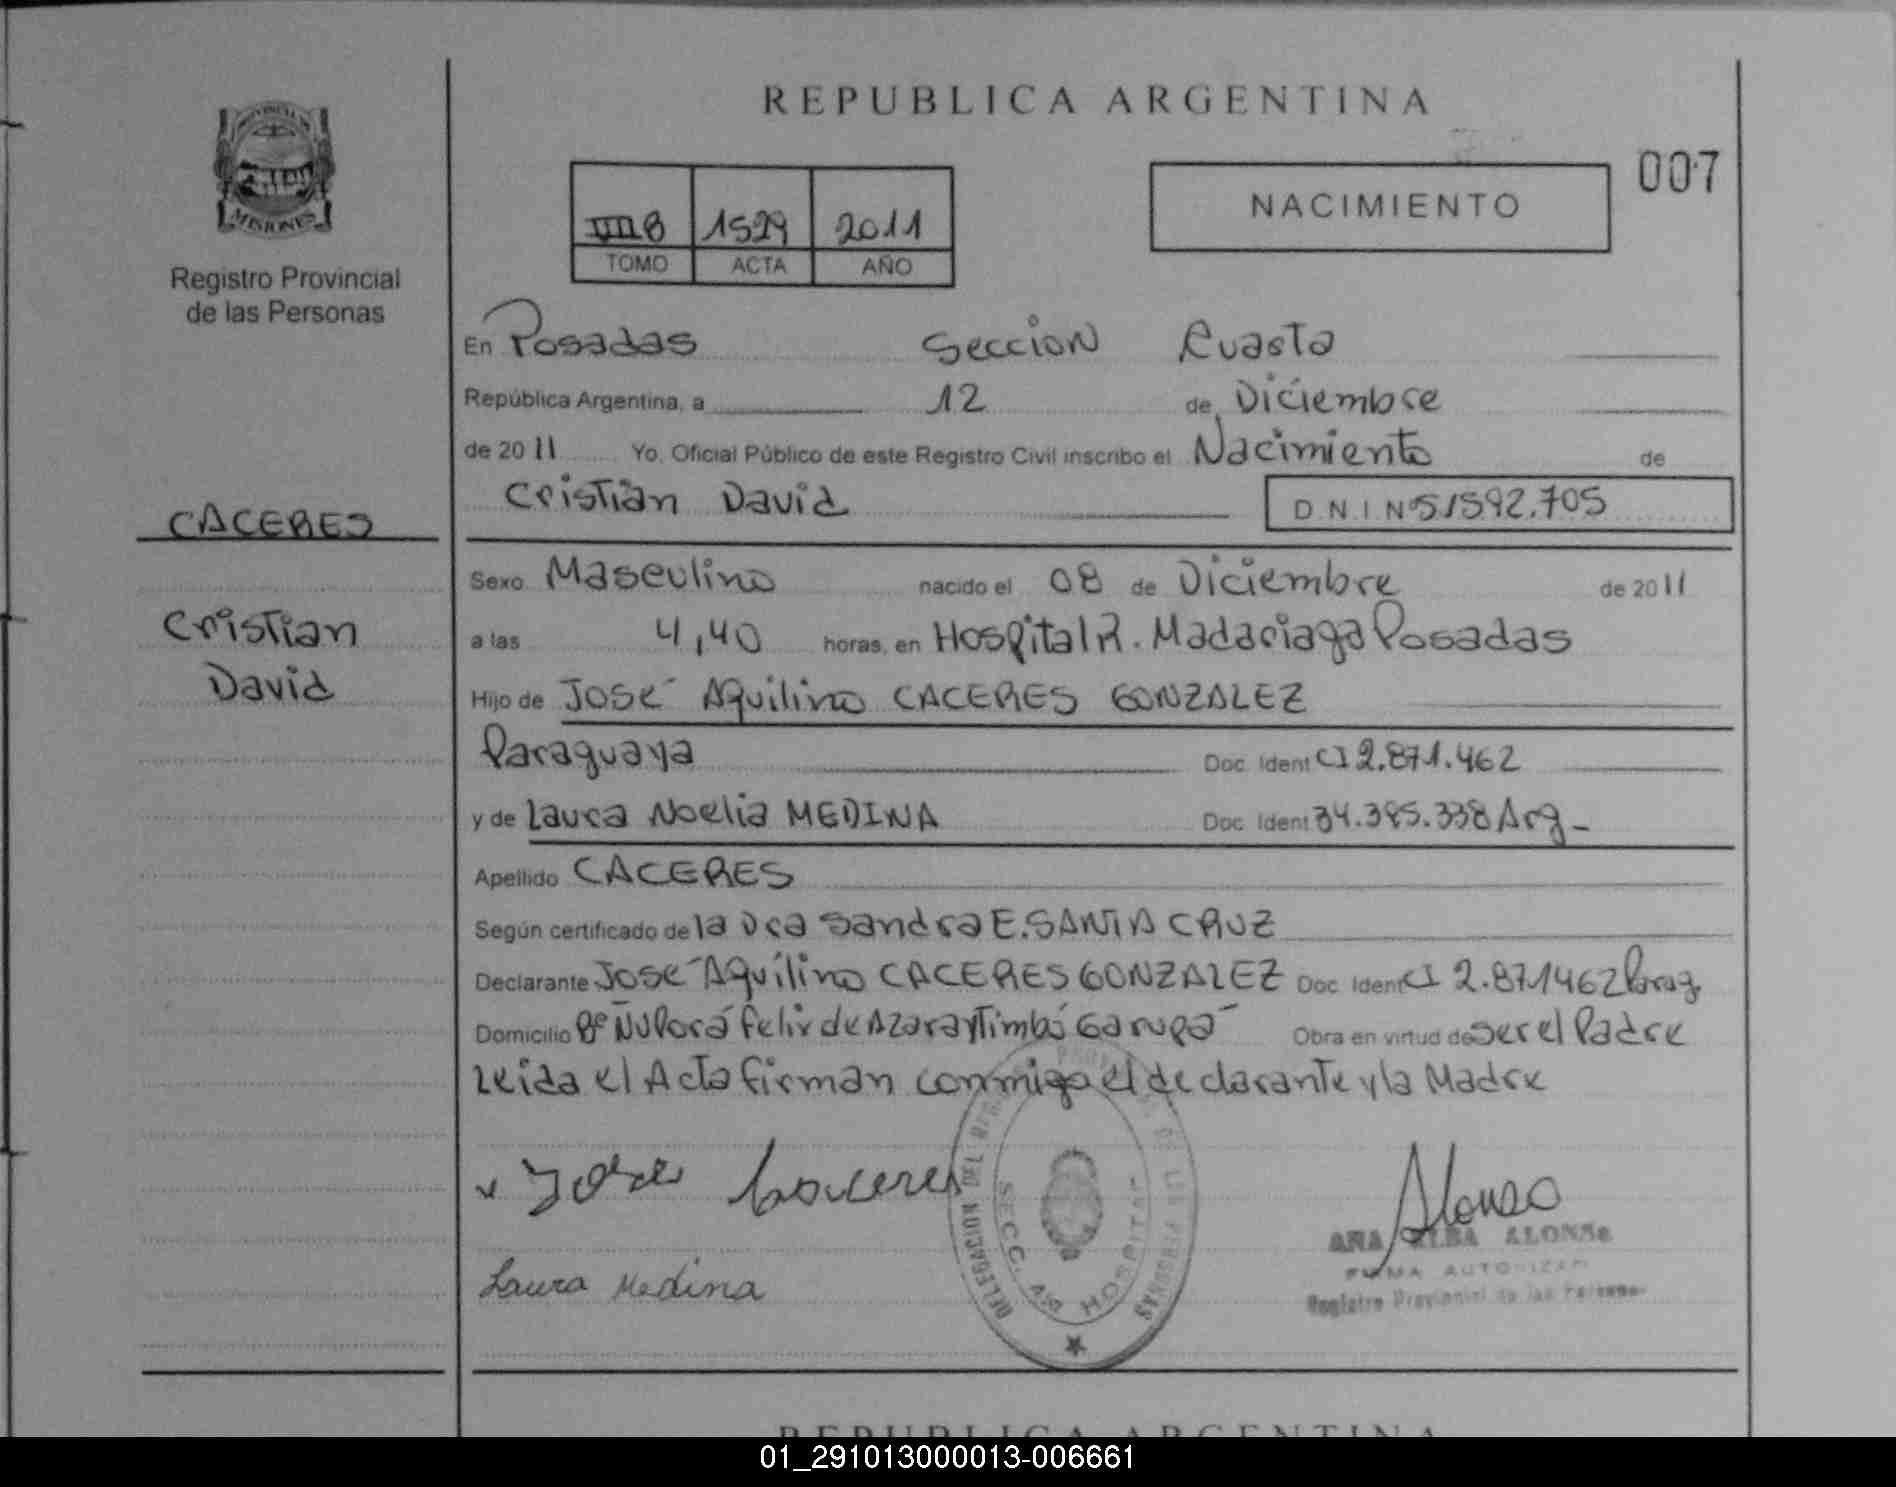 REPUBLICA ARGENTINA
007
NACIMIENTO
VIII B 1529 2011
TOMO ACTA AÑO
MISIONES
Registro Provincial
de las Personas
En Posadas Seccion Cuarta
República Argentina, a 12 de Diciembre
de 2011 Yo, Oficial Público de este Registro Civil inscribo el Nacimiento de
Cristian David D.N.I. Nº 51592.705
CACERES
Cristian
David
Sexo Masculino nacido el 08 de Diciembre de 2011
a las 4,40 horas, en Hospital R. Madariaga Posadas
Hijo de José Aquilino CACERES GONZALEZ
Paraguaya Doc. Ident CI 2.871.462
y de Laura Noelia MEDINA Doc. Ident 34.395.338 Arg -
Apellido CACERES
Según certificado de la Dra Sandra E. SANTA CRUZ
Declarante José Aquilino CACERES GONZALEZ Doc. Ident CI 2.871462 Parag.
Domicilio Bº Ñu Porá Felix de Azara y Timbó Garupá Obra en virtud de ser el Padre
Leida el Acta firman conmigo el declarante y la Madre
Jose Caceres
Laura Medina
DELEGACION DEL REGISTRO PROVINCIAL DE LAS PERSONAS
SECC. 4ta HOSPITAL
Alonso
ANA ALBA ALONSO
FIRMA AUTORIZADA
Registro Provincial de las Personas
REPUBLICA ARGENTINA
01_291013000013-006661